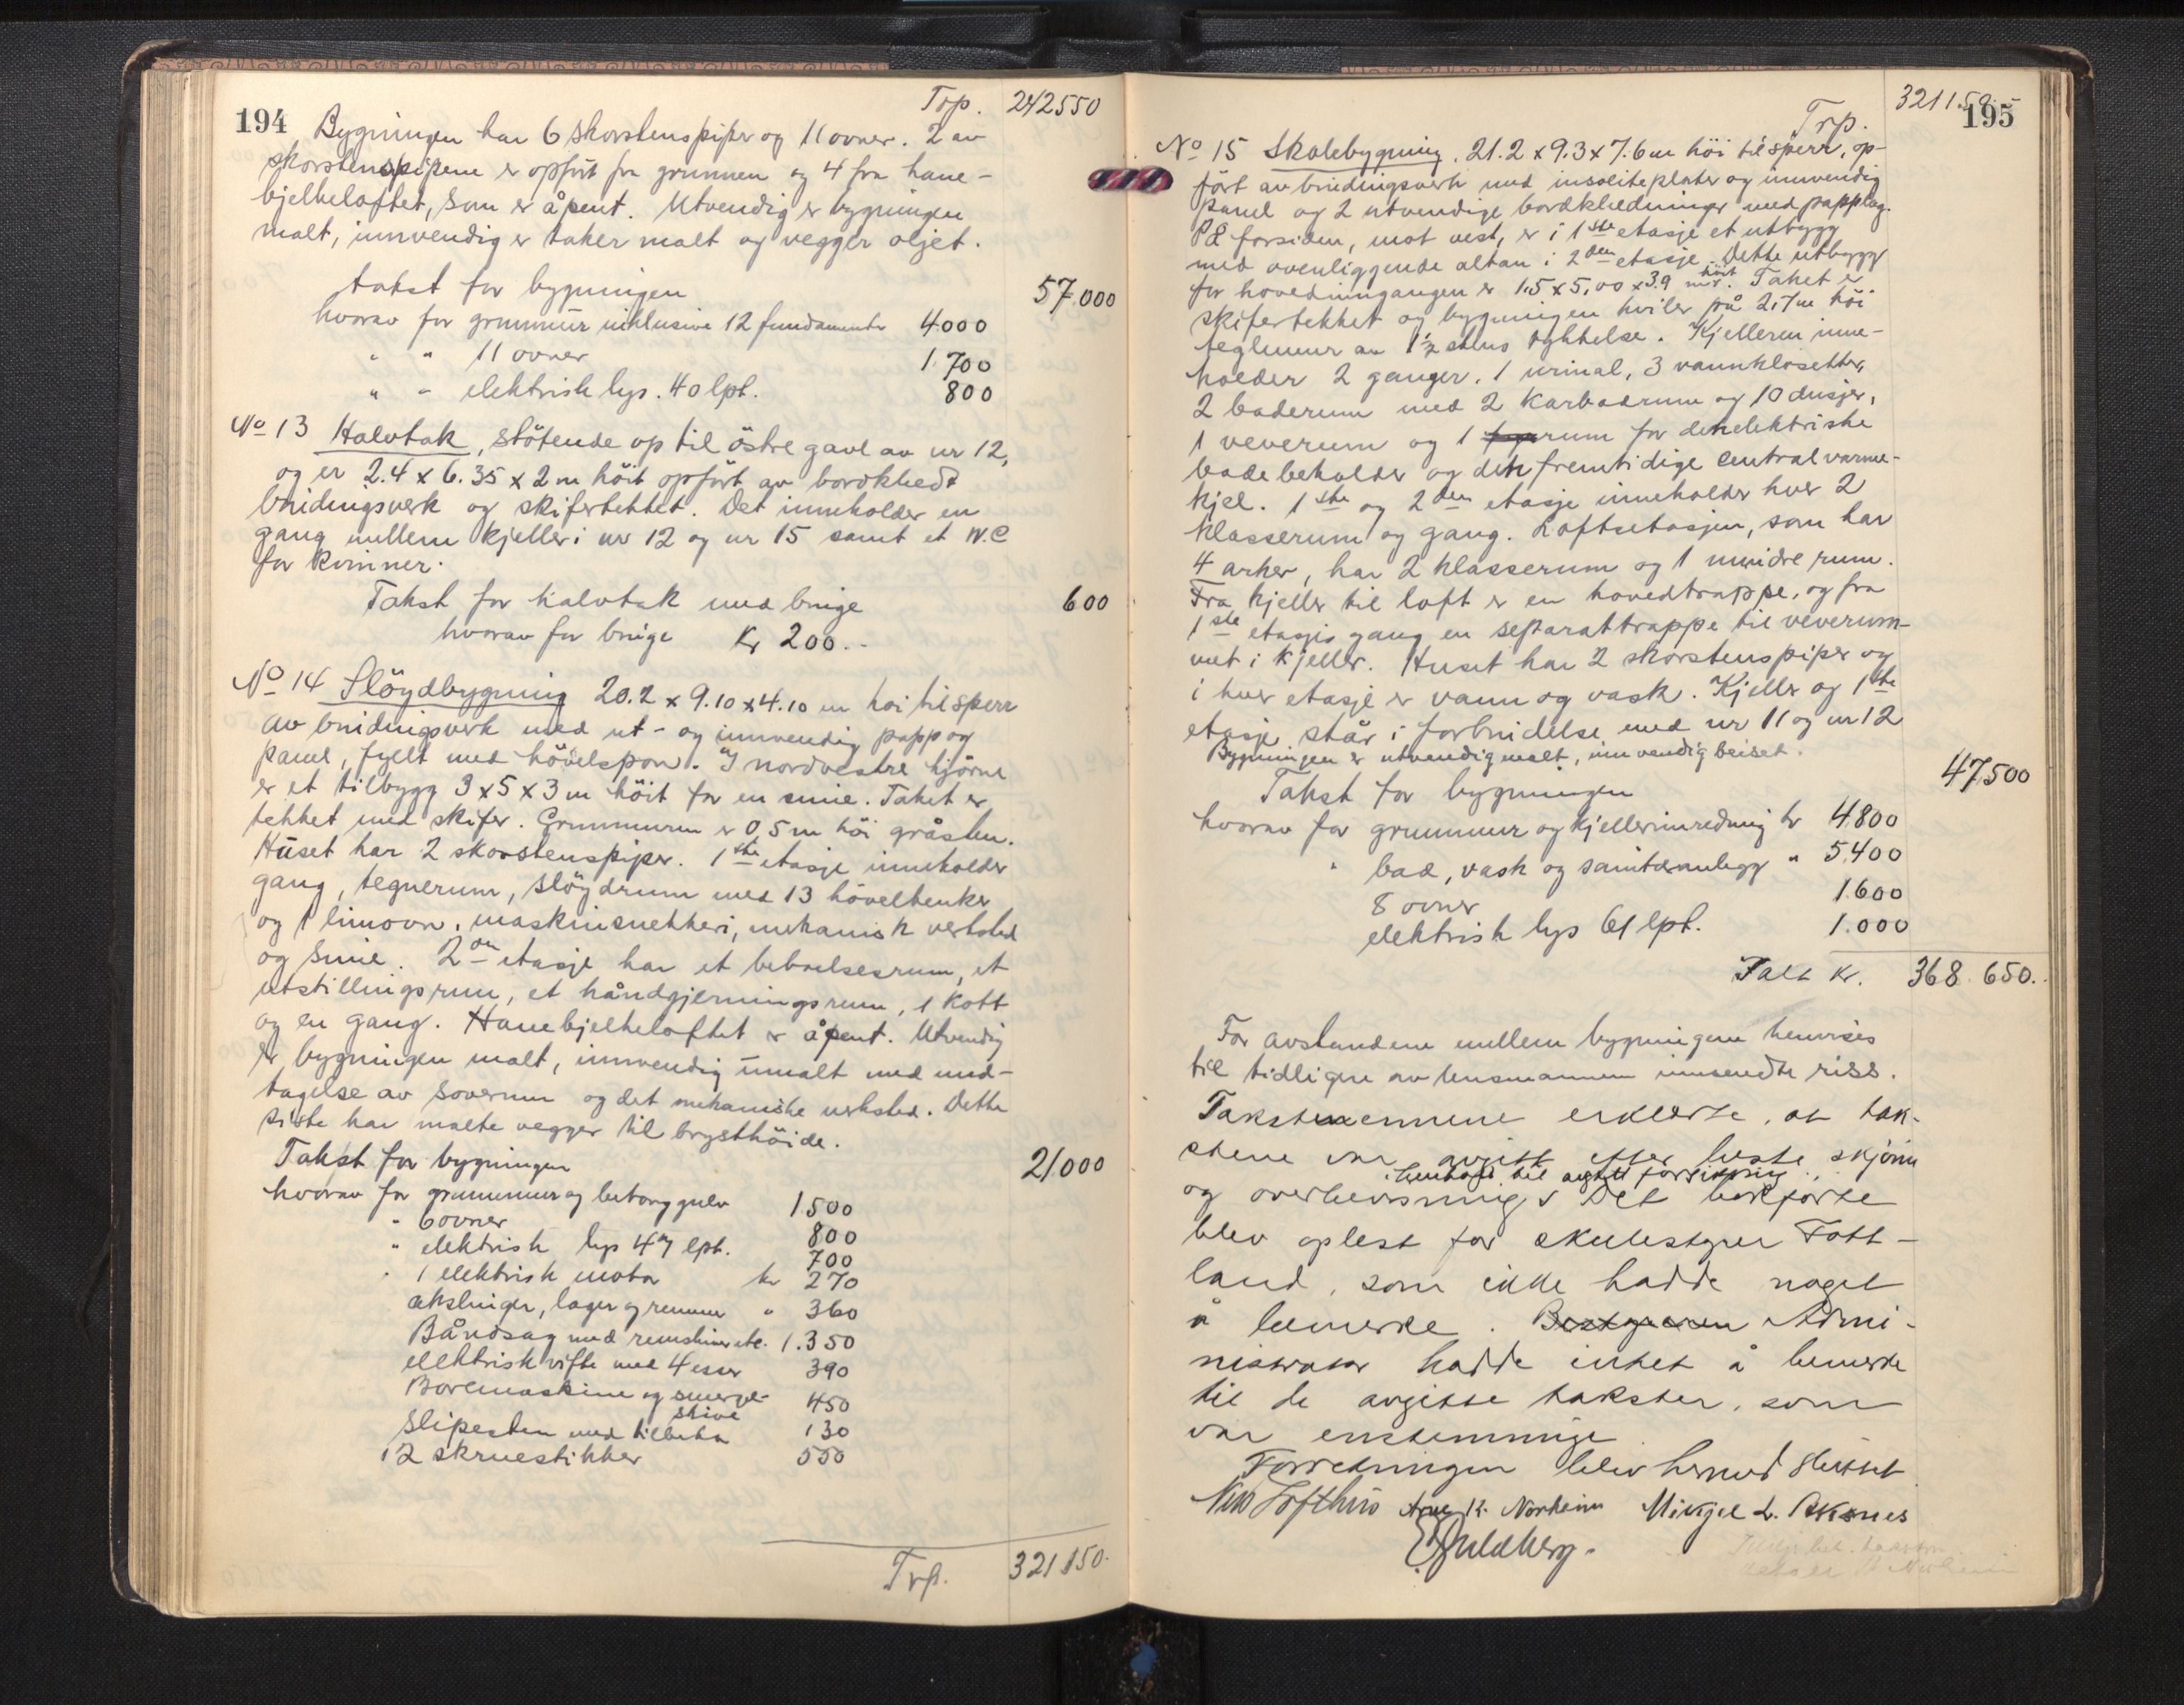 194
Trp. 242550
Bygningen har 6 skorstenspiper og 11 ovner. 2 av
skorstenspipene er opført fra grunnen og 4 fra hane-
bjelkeloftet, som er åpent. Utvendig er bygningen
malt, innvendig er taker malt og vegger oljet.
takst for bygningen 57.000
hvorav for grunnmur inklusive 12 fundamenter 4000
" " 11 ovner 1.700
" " elektrisk lys. 40 lpt. 800
No 13 Halvtak, støtende op til östre gavl av nr 12,
og er 2.4 x 6.35 x 2 m höit opfört av bordklædt
bindingsverk og skifertekket. Det inneholder en
gang mellem kjeller i nr 12 og nr 15 samt et W.C
for kvinner.
Takst for halvtak med binge 600
hvorav for binge Kr 200..
No 14 Slöydbygning 20.2 x 9.10 x 4.10 m höi til sperr
av bindingsverk med ut- og innvendig papp og
panel, fyllt med hövelspon. I nordvestre hjörne
er et tilbygg 3 x 5 x 3 m höit for en smie. Taket er
tekket med skifer. Grunnmuren er 0,5 m höi gråsten.
Huset har 2 skorstenspiper. 1ste etasje inneholder
gang, tegnerum, slöydrum med 13 hövelbenker
og 1 limovn, maskinsnekkeri, mekanisk verksted
og smie. 2en etasje har et beboelsesrum, et
utstillingsrum, et håndgjerningsrum, 1 kott
og en gang. Hanebjelkeloftet er åpent. Utvendig
er bygningen malt, innvendig umalt med und-
tagelse av soverum og det mekaniske verksted. Dette
siste har malte vegger til brysthöide.
Takst for bygningen 21000
hvorav for grunnmur og betonggulv 1.500
" 6 ovner 800
" elektrisk lys 49 lpt. 700
" 1 elektrisk motor kr 270
akslinger, lager og remmer " 360
Båndsag med remskiver etc. 1.350
elektrisk vifte med 4 esser 390
Boremaskine og smergel-
skive 450
Slipesten med tilbehör 130
12 skruestikker 550
Trp. 321150.
195
Trp. 321150.-
No 15 Skolebygning. 21.2 x 9.3 x 7.6 m höi til sperr, op-
fört av bindingsverk med insoliteplater og innvendig
panel og 2 utvendige bordklædninger med papplag.
På forsiden, mot vest, er i 1ste etasje et utbygg
med ovenliggende altan i 2den etasje. Dette utbygg
for hovedinngangen er 1,5 x 5,00 x 3.9 mtr. höit. Taket er
skifertekket og bygningen hviler på 2,7 m höi
teglmur av 1½ stens tykkelse. Kjelleren inne-
holder 2 ganger, 1 urinal, 3 vannklosetter,
2 baderum med 2 karbadrum og 10 dusjer,
1 veverum og 1 rum for den elektriske
badebeholder og den fremtidige centralvarme-
kjel. 1ste og 2den etasje inneholder hver 2
klasserum og gang. Loftsetasjen, som har
4 arker, har 2 klasserum og 1 mindre rum.
Fra kjeller til loft er en hovedtrappe, og fra
1ste etasjes gang en separattrappe til veverum-
met i kjeller. Huset har 2 skorstenspiper og
i hver etasje er vann og vask. Kjeller og 1ste
etasje står i forbindelse med nr 11 og nr 12
Bygningen er utvendig malt, innvendig beiset.
Takst for bygningen 47500
hvorav for grunnmur og kjellerinredning kr 4.800
" bad, vask og sanitæranlegg " 5.400
8 ovner 1.600
elektrisk lys 61 lpt. 1.000
Talt Kr. 368.650..
For avstandene mellem bygningene henvises
til tidligere av lensmannen innsendte riss.
Takstmennene erklærte, at tak-
stene var avgitt efter beste skjönn
og overbevisning i henhold til avgitt forsikring. Det bokförte
blev oplest for skulestyrer Tott-
land, som ikke hadde noget
å bemerke. Bestyreren Admi-
nistrator hadde intet å bemerke
til de avgitte takster, som
var enstemmige
Forretningen blev hermed sluttet
Nils Lofthus Arne K. Norheim Mikjel L. Aksnes
E Guldberg.